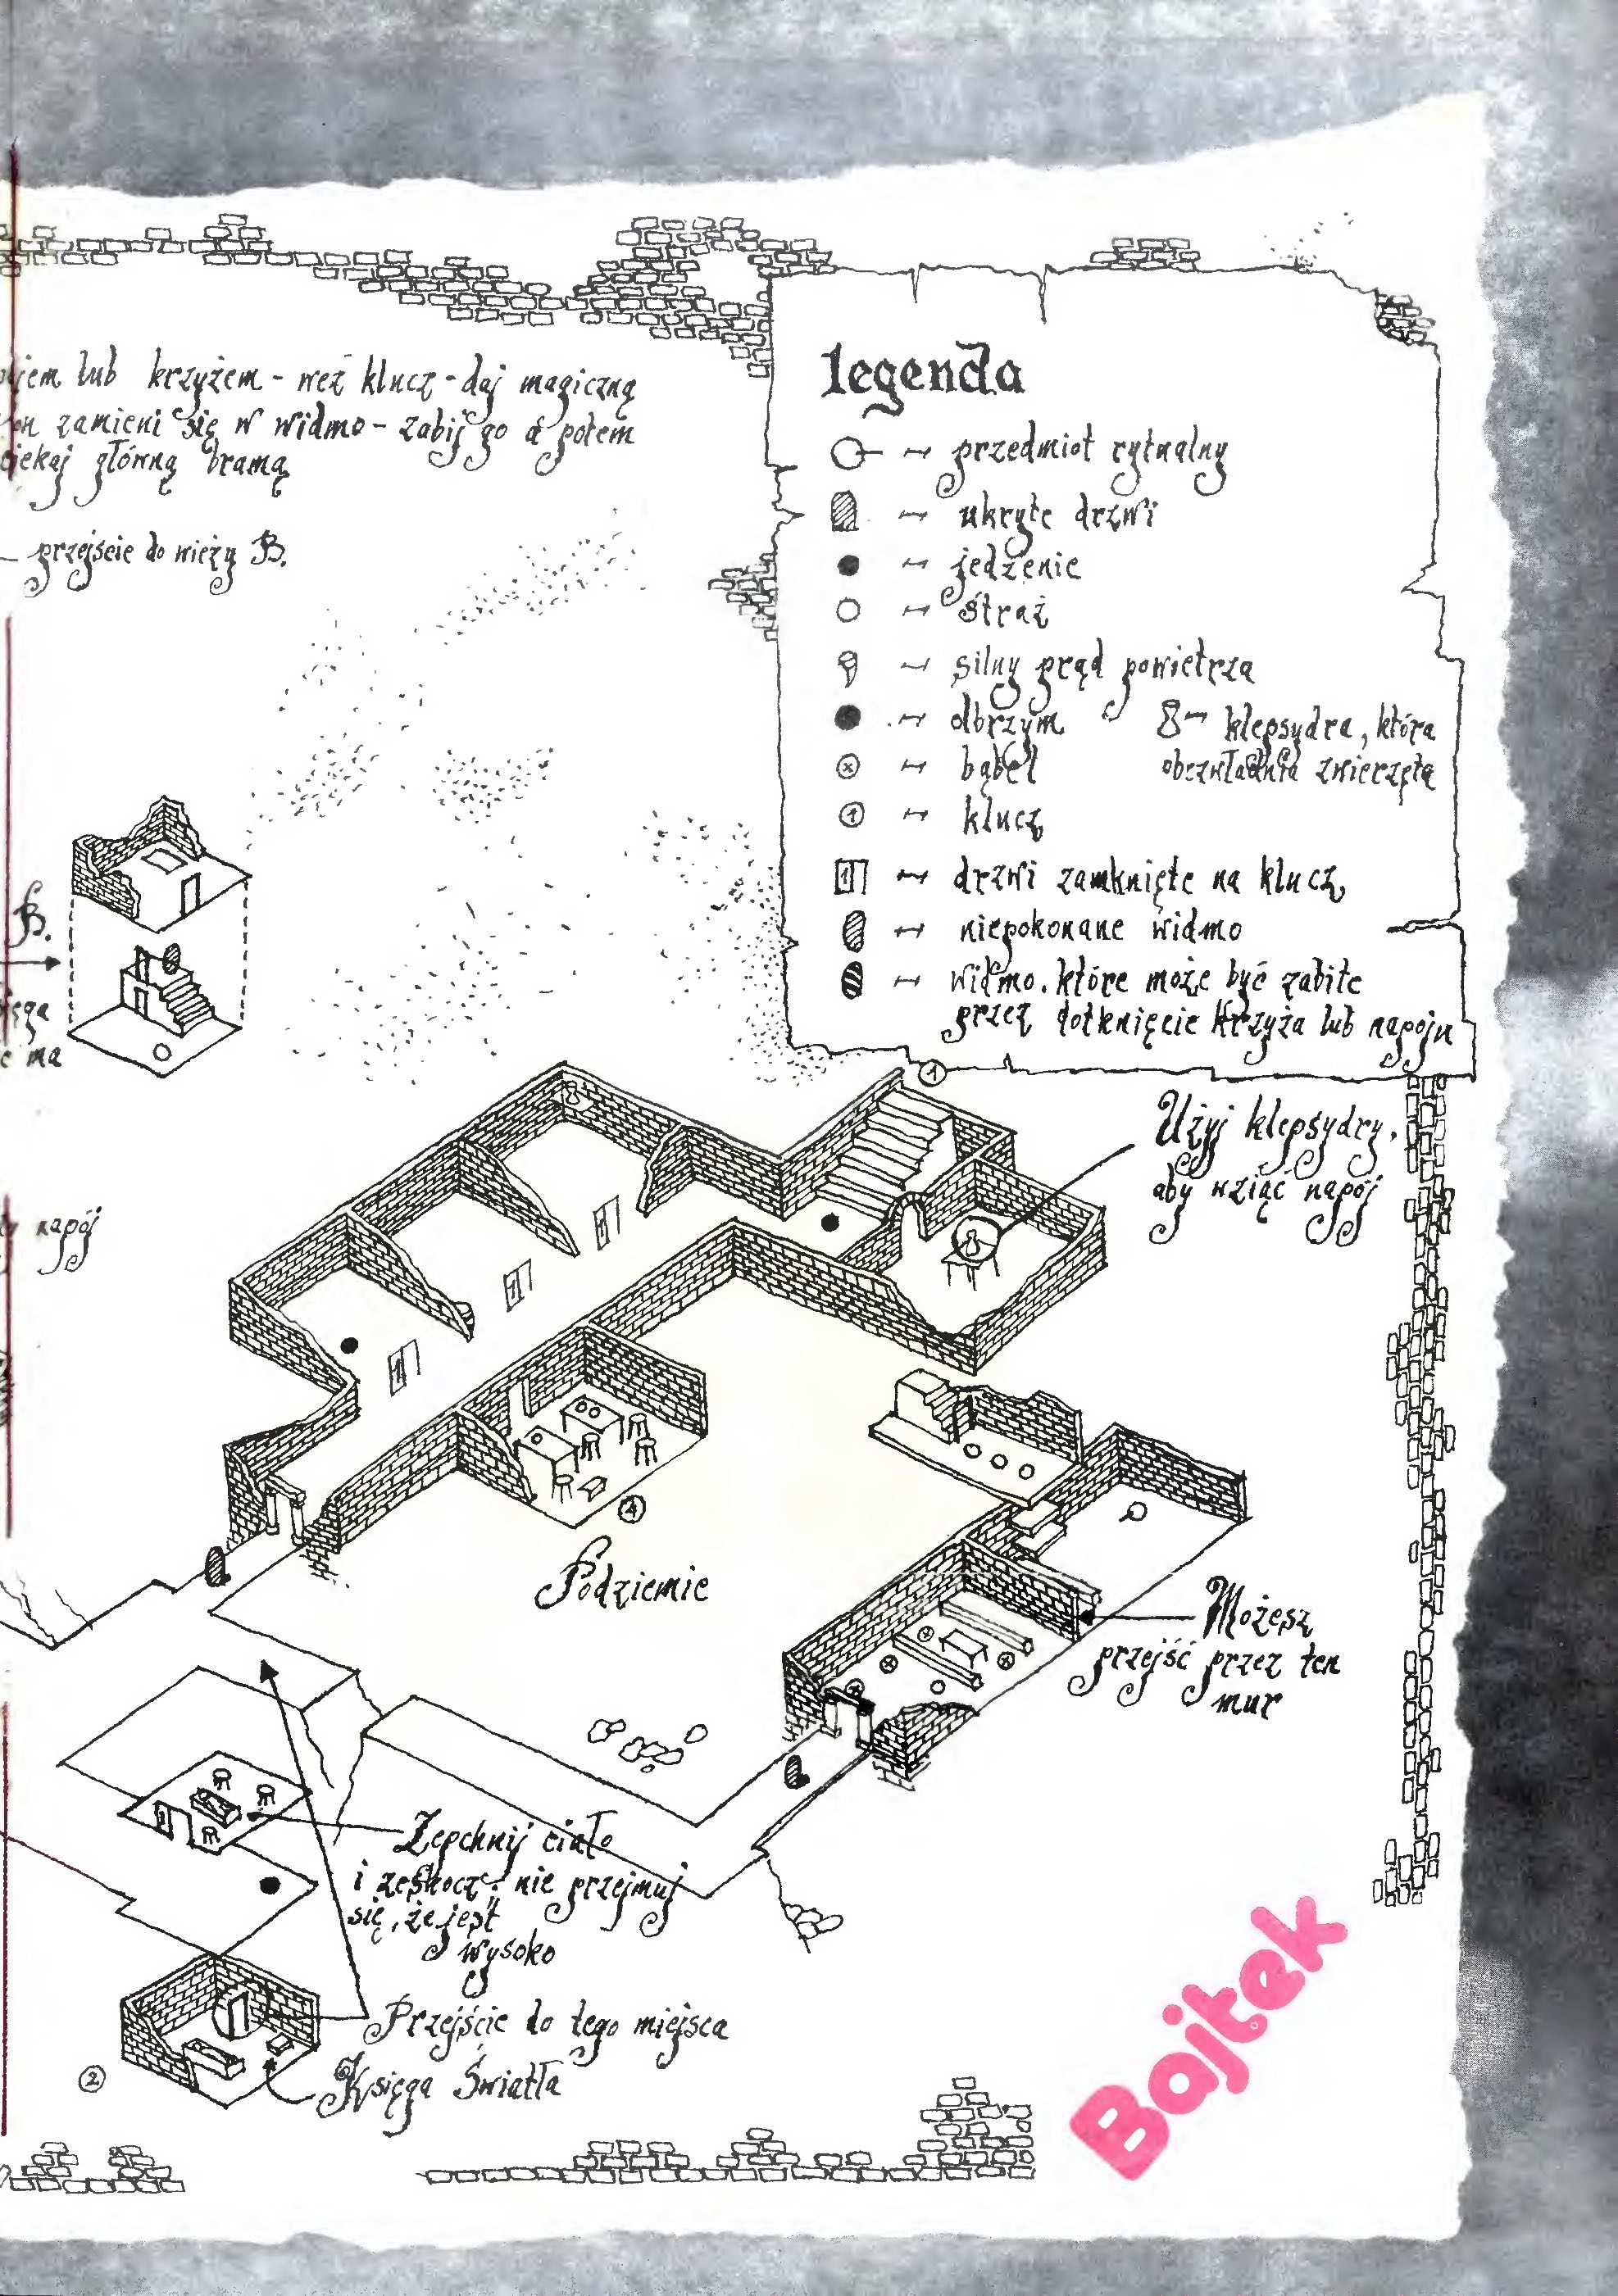 lub krzyżem - weź klucz - daj magiczną
zamieni się w widmo - zabij go a potem
główną bramą
przejście do wieży B.
legenda
przedmiot rytualny
ukryte drzwi
jedzenie
straż
silny prąd powietrza
olbrzym
klepsydra, która
obezwładnia zwierzęta
bąbel
1 klucz
1 drzwi zamknięte na klucz
niepokonane widmo
widmo, które może być zabite
przez dotknięcie krzyża lub napoju
B.
ma
1
Użyj klepsydry,
aby wziąć napój
napój
1
1
1
4
Podziemie
Możesz
przejść przez ten
mur
Zepchnij ciało
i zeskocz - nie przejmuj
się, że jest
wysoko
Przejście do tego miejsca
Księga Światła
2
Bajtek